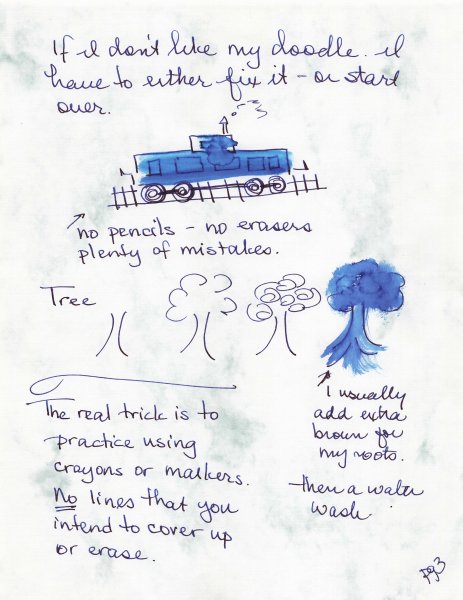 If I don't like my doodle. I
have to either fix it - or start
over.
no pencils - no erasers
plenty of mistakes.
Tree
I usually
add extra
brown for
my roots.
then a water
wash.
The real trick is to
practice using
crayons or markers.
No lines that you
intend to cover up
or erase.
pg3